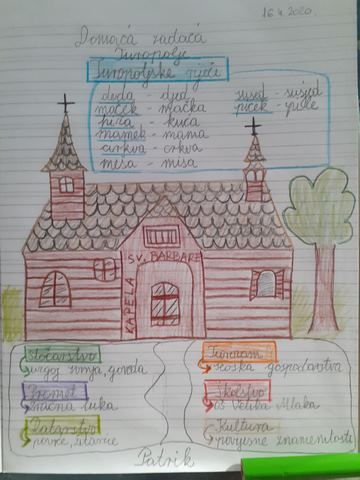 16.4.2020.
Domaća zadaća
Turopolje
Turopoljske riječi
deda - djed
maček - mačka
hiža - kuća
mamek - mama
cirkva - crkva
meša - misa
sused - susjed
piček - pile
SV. BARBARE
KAPELA
Stočarstvo
uzgoj svinja, goveda
Promet
zračna luka
Ratarstvo
povrće, žitarice
Turizam
seoska gospodarstva
Školstvo
OŠ Velika Mlaka
Kultura
povijesne znamenitosti
Patrik